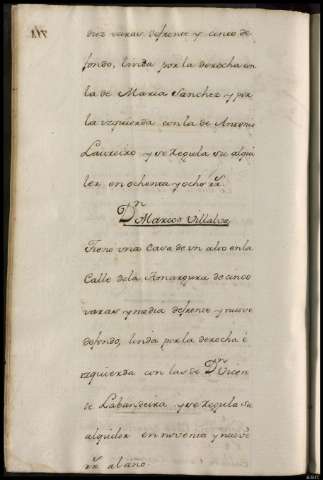 diez varas defrente y cinco de
fondo, linda por la derecha con
la de Maria Sanchez y por
la yzquierda con la de Antonio
Laureiro y se regula su alqui
ler en ochenta y ocho rr.
Dn Marcos Villalva
Tiene una Casa de un alto en la
Calle dela Amargura de cinco
varas y media defrente y nueve
defondo, linda por la derecha è
yzquierda con las de Dn Vicen
de Labandeira y se regula su
alquiler en noventa y nueve
rr al ano.